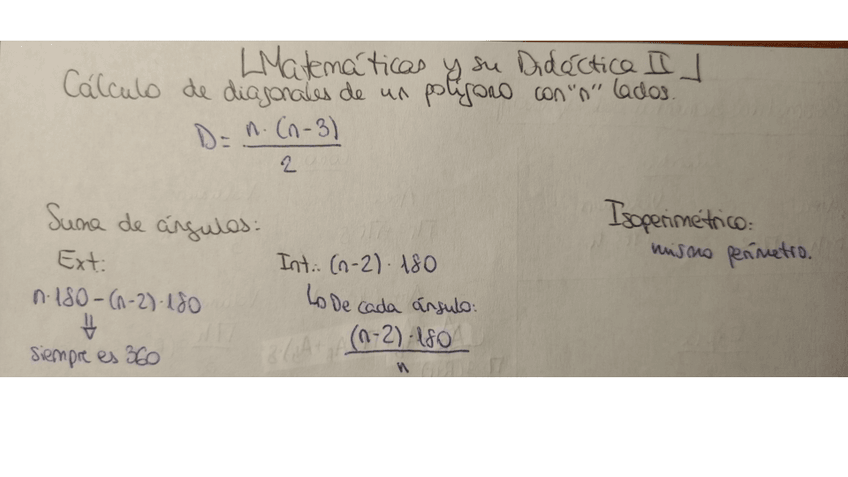 Matemáticas y su Didáctica II
Cálculo de diagonales de un polígono con "n" lados.
D = n·(n-3) / 2
Suma de ángulos:
Ext:
n·180-(n-2)·180
⇓
siempre es 360
Int.: (n-2)·180
↳ De cada ángulo:
(n-2)·180 / n
Isoperimétrico:
mismo perímetro.